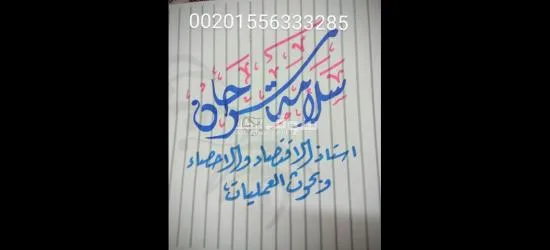 00201556333285
سلامة سرحان
استاذ الاقتصاد والاحصاء
وبحوث العمليات